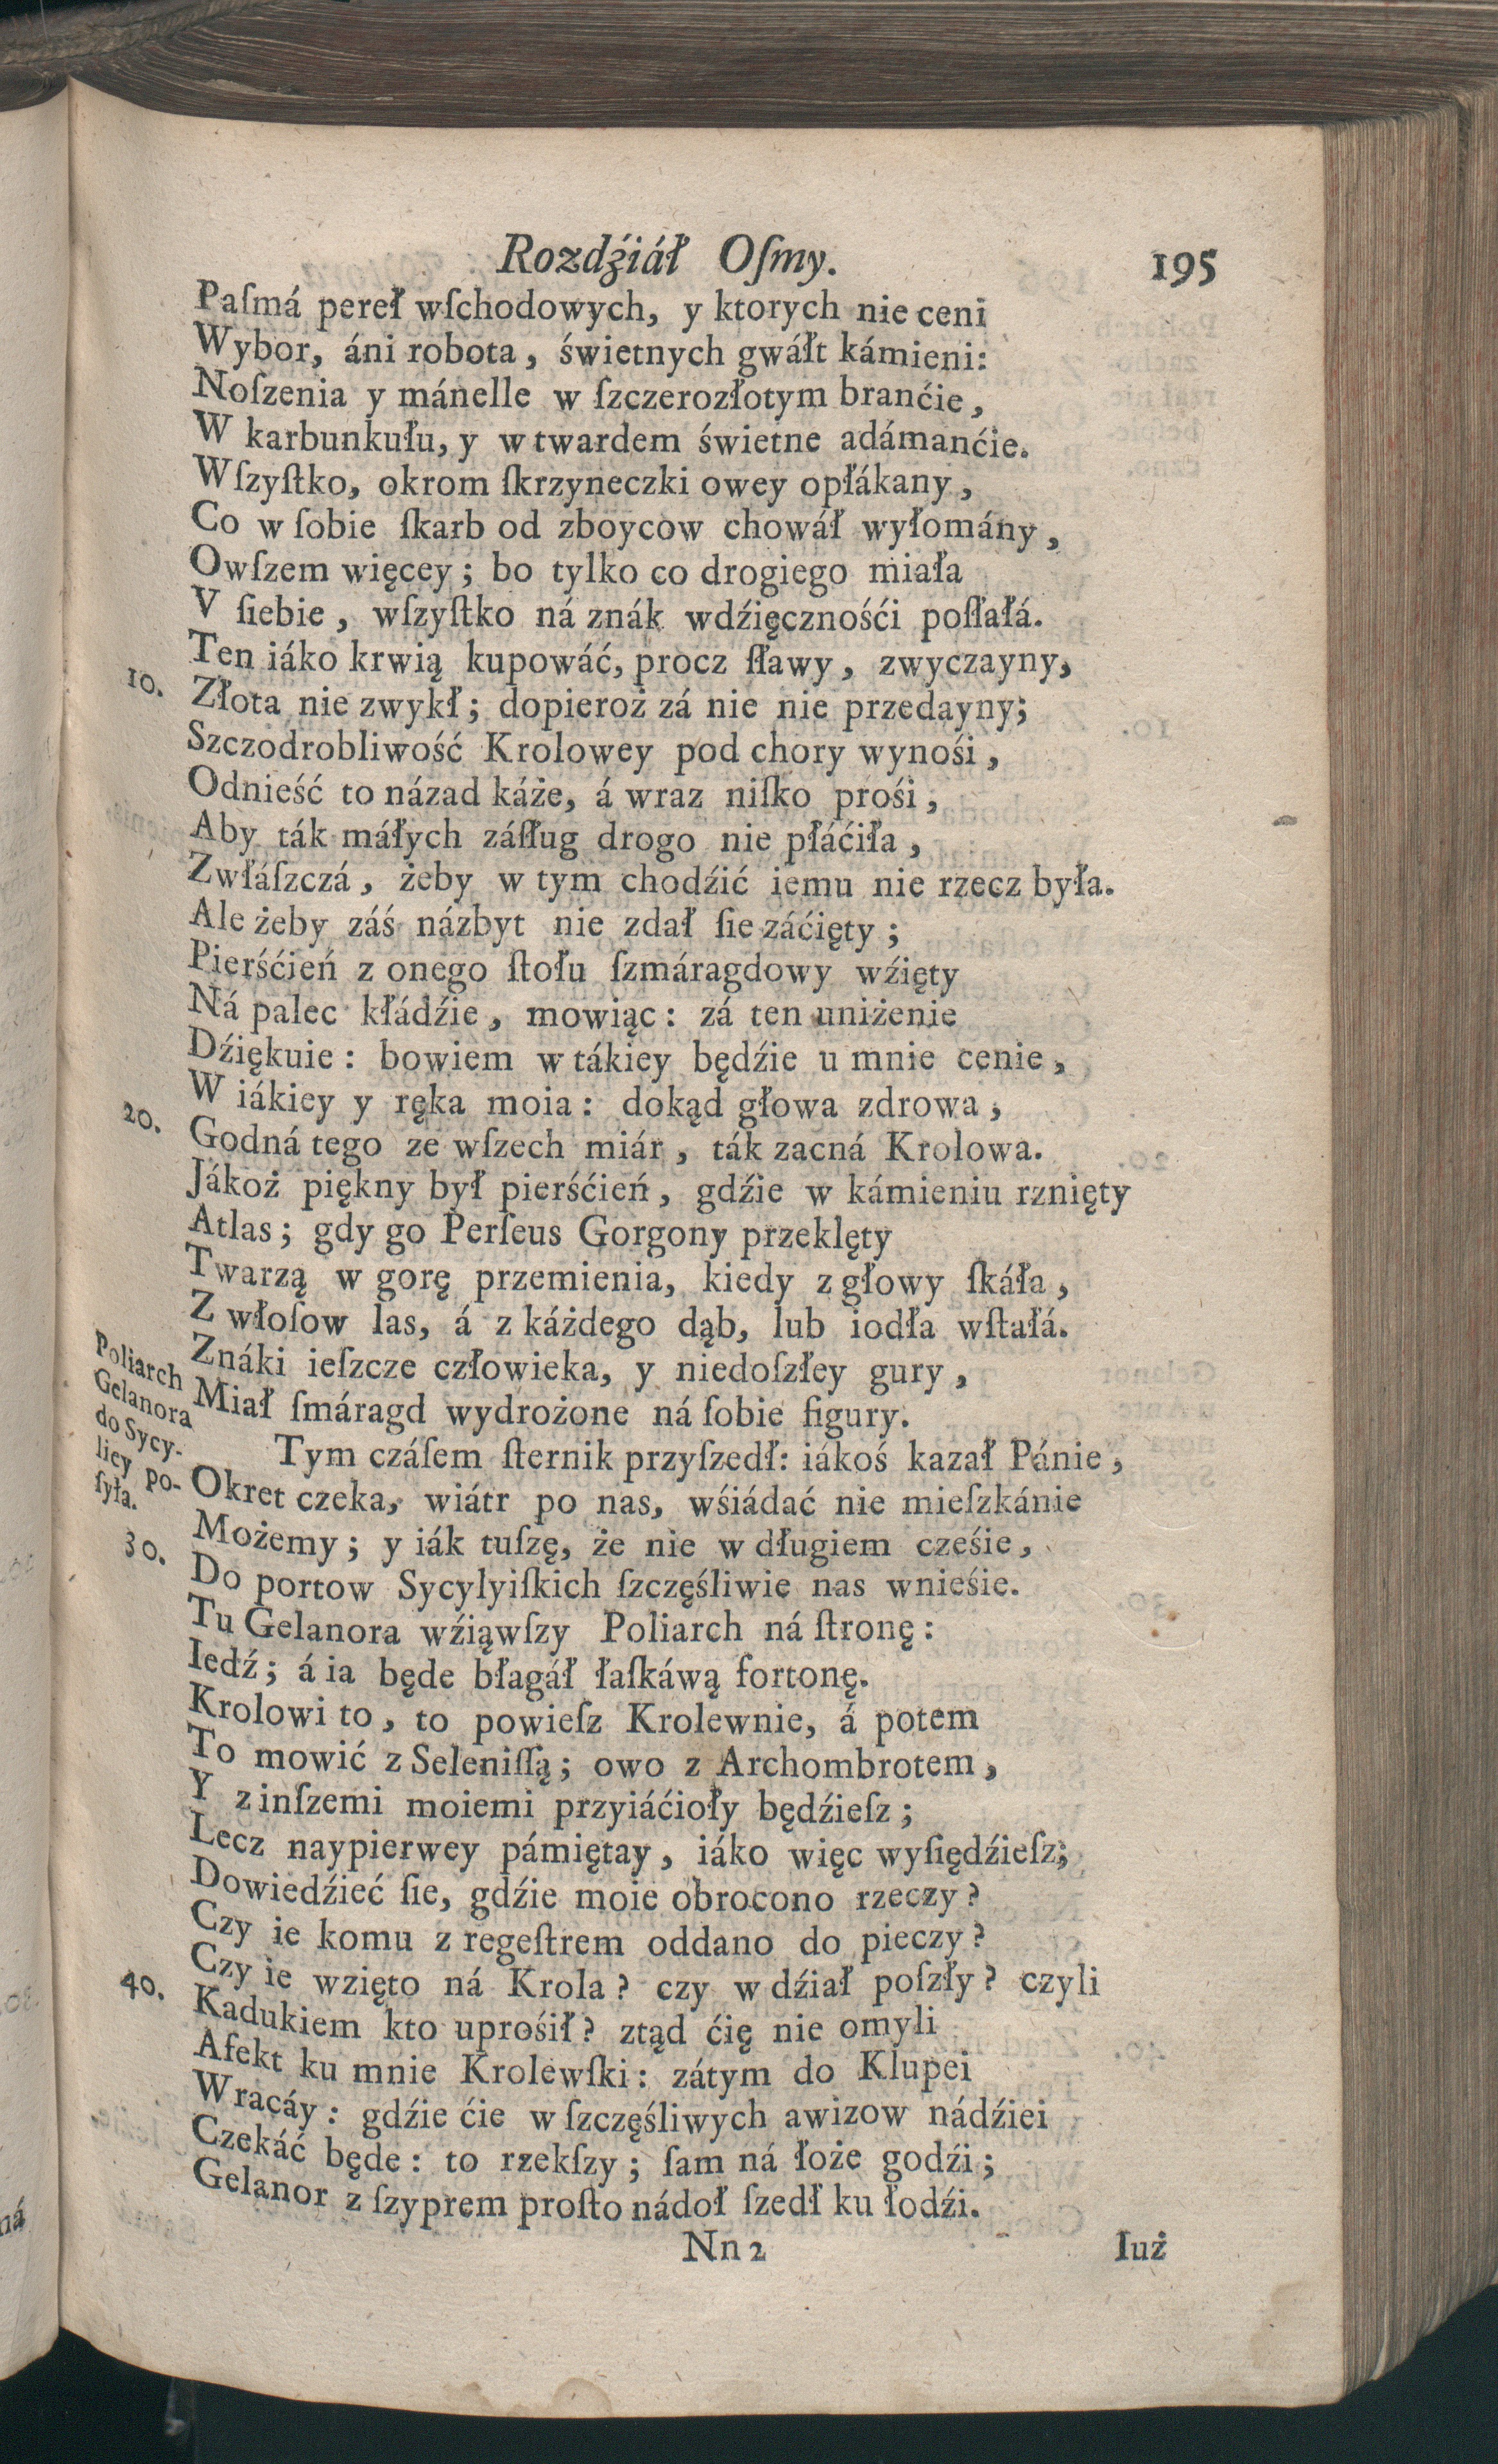 Rozdźiáł Oſmy. 195
Paſmá pereł wſchodowych, y ktorych nie ceni
Wybor, áni robota, świetnych gwáłt kámieni:
Noſzenia y mánelle w ſzczerozłotym branćie,
W karbunkułu, y w twardem świetne adámanćie.
Wſzyſtko, okrom ſkrzyneczki owey opłákany,
Co w ſobie ſkarb od zboycow chowáł wyłomány,
Owſzem więcey; bo tylko co drogiego miała
V ſiebie, wſzyſtko ná znák wdźięcznośći poſłałá.
Ten iáko krwią kupowáć, procz ſławy, zwyczayny,
10. Złota nie zwykł; dopieroż zá nie nie przedayny;
Szczodrobliwość Krolowey pod chory wynośi,
Odnieść to názad káże, á wraz niſko prośi,
Aby ták máłych záſług drogo nie płáćiła,
Zwłáſzczá, żeby w tym chodźić iemu nie rzecz była.
Ale żeby záś názbyt nie zdał ſie záćięty;
Pierśćień z onego ſtołu ſzmáragdowy wźięty
Ná palec kłádźie, mowiąc: zá ten uniżenie
Dźiękuie: bowiem w tákiey będźie u mnie cenie,
W iákiey y ręka moia: dokąd głowa zdrowa,
20. Godná tego ze wſzech miár, ták zacná Krolowa.
Jákoż piękny był pierśćień, gdźie w kámieniu rznięty
Atlas; gdy go Perſeus Gorgony przeklęty
Twarzą w gorę przemienia, kiedy z głowy ſkáła,
Z włoſow las, á z káżdego dąb, lub iodła wſtałá.
Znáki ieſzcze człowieka, y niedoſzłey gury,
Miał ſmáragd wydrożone ná ſobie figury.
Poliarch
Gelanora
do Sycy-
liey po-
ſyła.
Tym czáſem ſternik przyſzedł: iákoś kazał Pánie,
Okret czeka, wiátr po nas, wśiádać nie mieſzkánie
Możemy; y iák tuſzę, że nie w długiem cześie,
30. Do portow Sycylyiſkich ſzczęśliwie nas wnieśie.
Tu Gelanora wźiąwſzy Poliarch ná ſtronę:
Iedź; á ia będe błagáł łaſkáwą fortonę.
Krolowi to, to powieſz Krolewnie, á potem
To mowić z Seleniſſą; owo z Archombrotem,
Y z inſzemi moiemi przyiáćioły będźieſz;
Lecz naypierwey pámiętay, iáko więc wyſiędźieſz;
Dowiedźieć ſie, gdźie moie obrocono rzeczy?
Czy ie komu z regeſtrem oddano do pieczy?
Czy ie wzięto ná Krola? czy w dźiał poſzły? czyli
40. Kadukiem kto uprośił? ztąd ćię nie omyli
Afekt ku mnie Krolewſki: zátym do Klupei
Wracáy: gdźie ćie w ſzczęśliwych awizow nádźiei
Czekáć będe: to rzekſzy; ſam ná łoże godźi;
Gelanor z ſzyprem proſto nádoł ſzedł ku łodźi.
Nn 2 Iuż